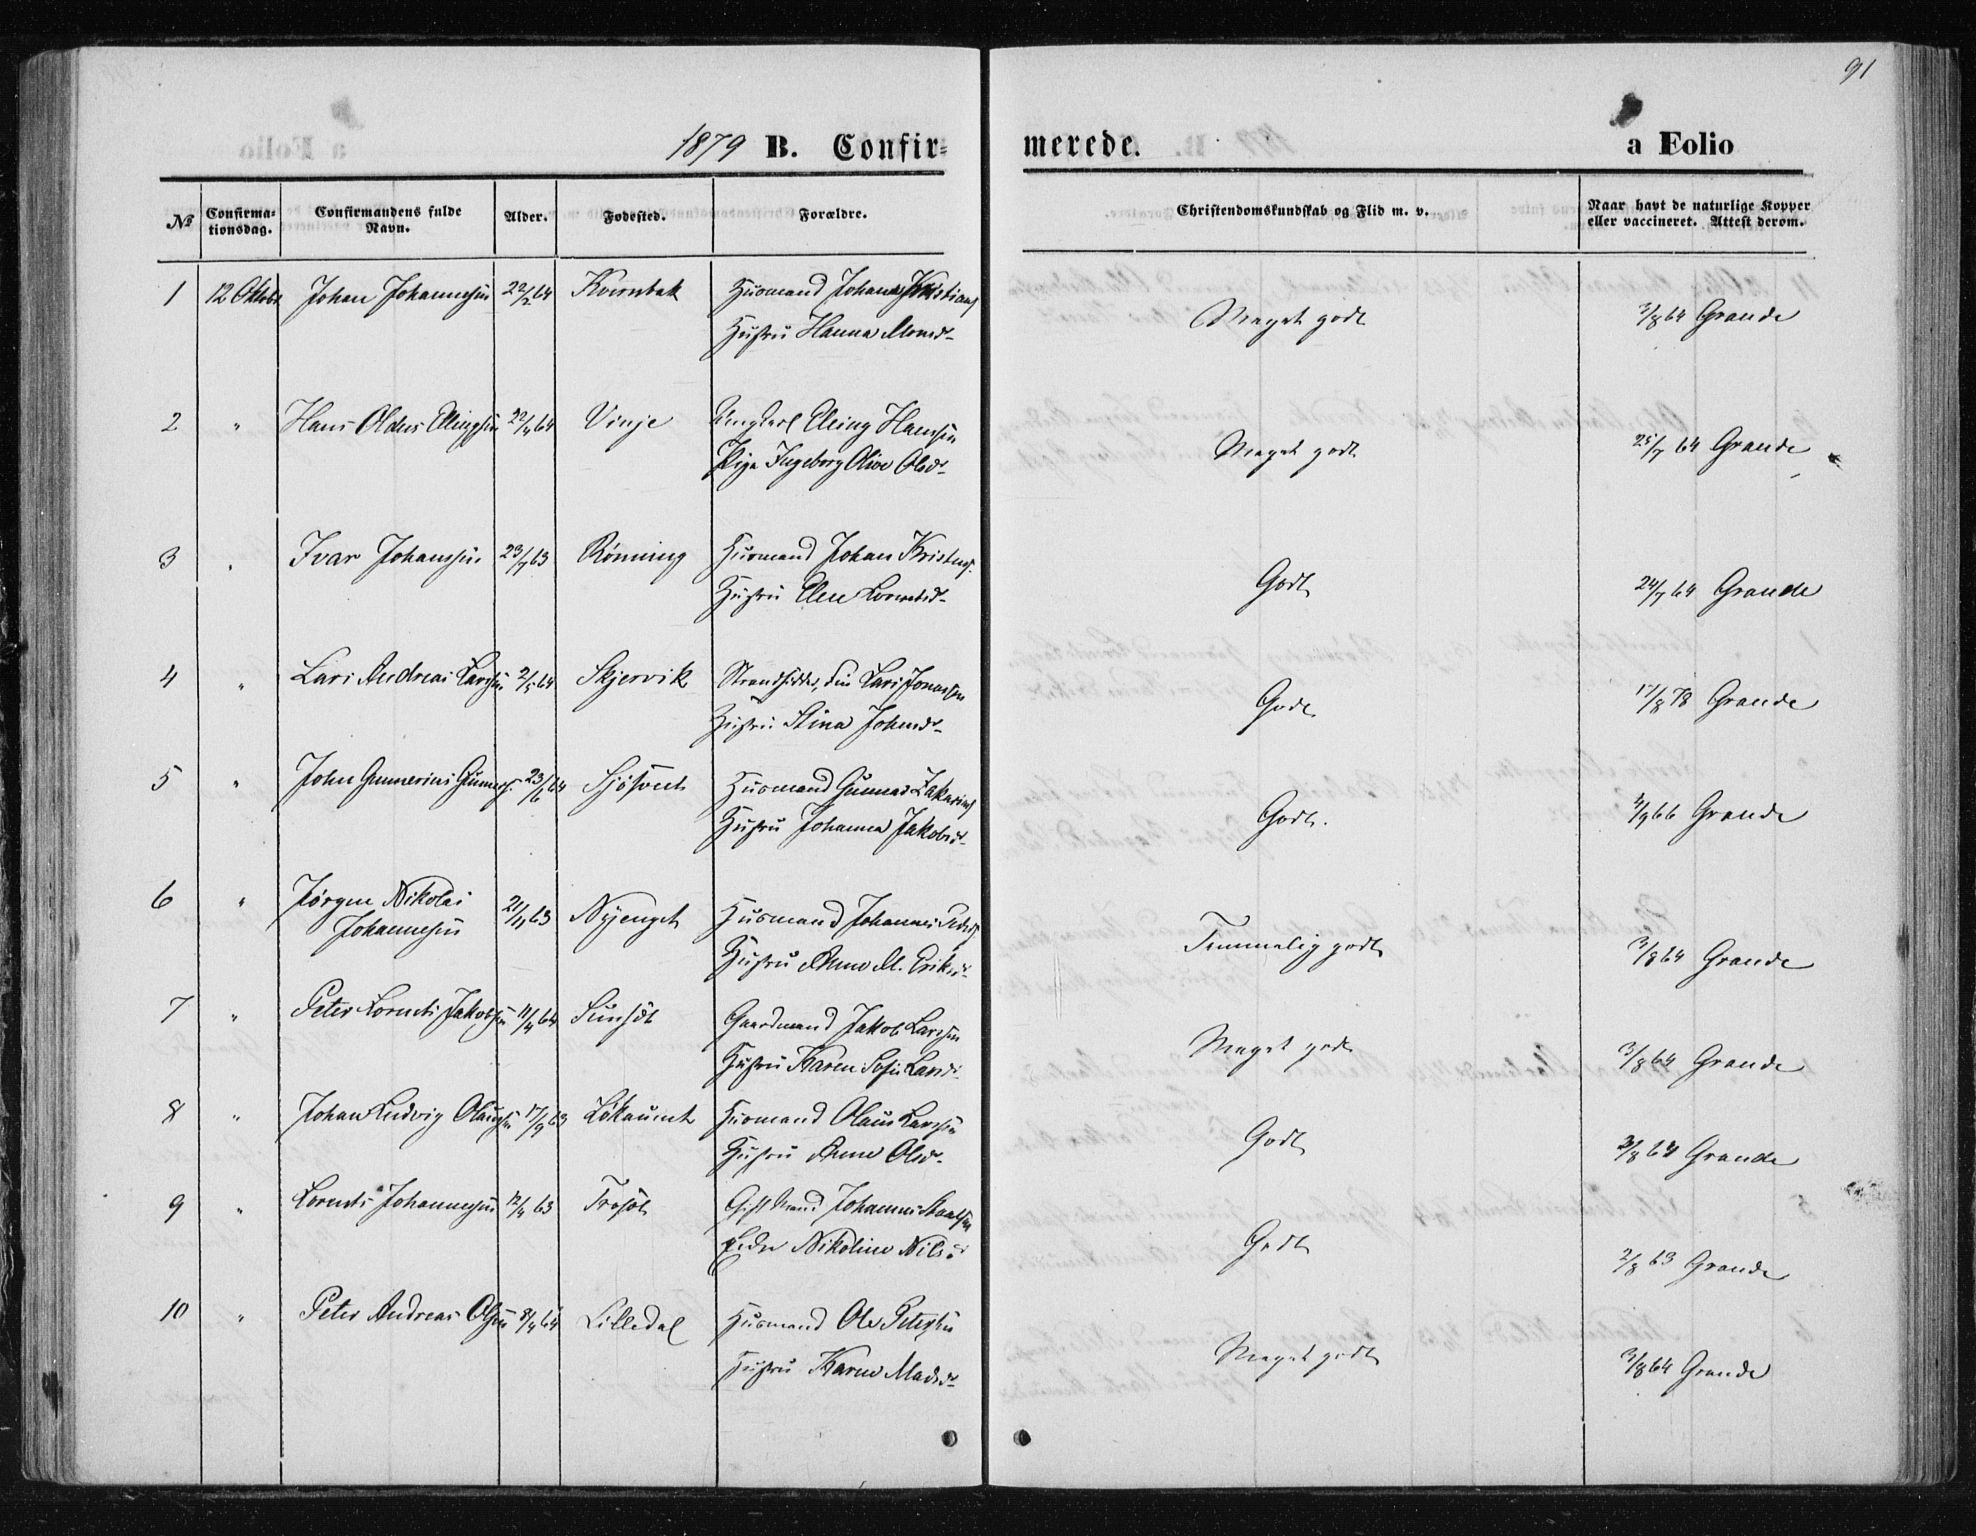 91
1879 B. Confir=
merede. a Folio
No Confirma=
tionsdag. Confirmandens fulde
Navn. Alder. Fødested. Forældre. Christendomskundskab og Flid m. v. Naar havt de naturlige Kopper
eller vaccineret. Attest derom.
1 12 Oktobr Johan Johannessen 22/2 64 Kverntak Husmand Johannes Kristians
Hustru Hanna
Meget godt 3/8 64 Grande
2 " Hans Oldus Ellingsen 22/4 64 Vinje Ungkarl Elling Hansen
Pige Ingeborg Olive Olsdr
Meget godt 25/7 64 Grande
3 " Ivar Johansen 23/7 63 Rönning Husmand Johan Kristens.
Hustru Elen Lorntsdr
Godt 24/7 64 Grande
4 " Lars Andreas Larssen 2/5 64 Skjervik Strandsidder, Lars Jonassen
Hustru Stina Johnsdr
Godt 17/8 78 Grande
5 " John Gunnerius Gunners. 23/6 64 Husmand Gunnar Zakarias
Hustru Johanna Jakobsdr
Godt. 4/9 66 Grande
6 " Jørgen Nikolai
Johannessen 21/11 63 Nyenget Husmand Johannes
Hustru Anne M. Eriksdr
Temmelig godt 3/8 64 Grande
7 " Peter Lornts Jakobsen 11/4 64 Gaardmand Jakob Larssen
Hustru Karen Sofie Larsdr
Meget godt 3/8 64 Grande
8 " Johan Ludvig Olaussen 17/9 63 Løkaunet Husmand Olaus Larssen
Hustru Anne Olsdr
Godt 3/8 64 Grande
9 " Lornts Johannessen 12/4 63 Gift Mand Johannes
Enke Nikoline Nilsdr
Godt 2/8 63 Grande
10 " Peter Andreas Olsen 8/4 64 Lilledal Husmand Ole Petersen
Hustru Karen Madsdr
Meget godt 3/8 64 Grande